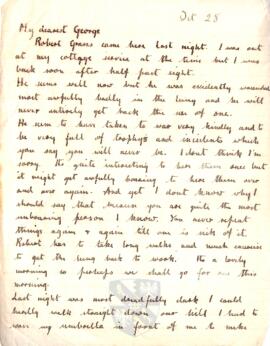 Oct 28
My dearest George
Robert Graves came here last night. I was out
at my cottage service at the time but I was
back soon after half past eight.
He seems well now but he was excitedly wounded
most awfully badly in the lung and he will
never entirely get back the use of one.
He seem to have taken to war very kindly and to
be very full of trophies and incidents which
you say you will never be. I don't think I'm
sorry. It's quite interesting to hear them once but
it might get awfully boring to hear them over
and over again. And yet I don't know why I
should say that because you are quite the most
unboring person I know. You never repeat
things again & again till one is sick of it.
Robert has to take long walks and much exercise
to get the lung back to work. It's a lovely
morning so perhaps we shall go for one this
morning.
Last night was most dreadfully dark I could
hardly walk straight down our hill I had to
wave my umbrella in front of me to make